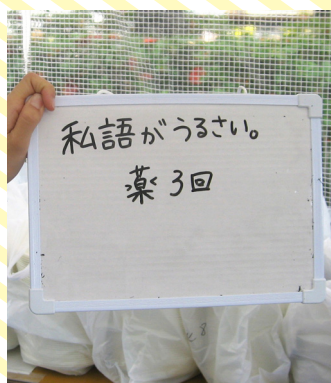 私語がうるさい。
薬3回